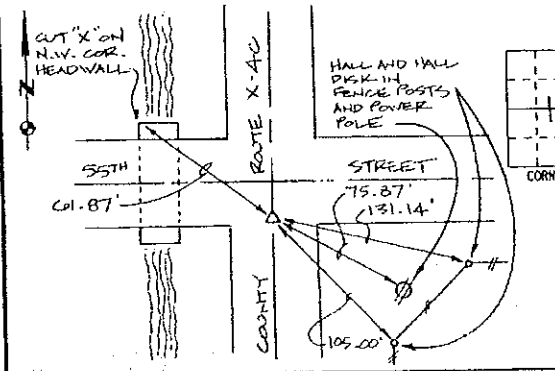 CUT "X" ON
N.W. COR.
HEADWALL
N
HALL AND HALL
DISK IN
FENCE POSTS
AND POWER
POLE
ROUTE X-40
COUNTY
55TH
STREET
61.87'
75.87'
131.14'
105.00'
CORN